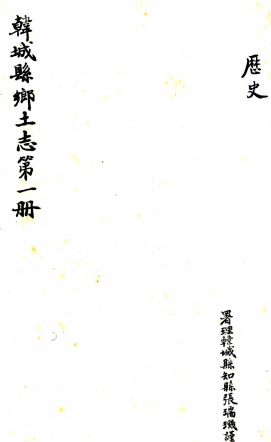 歷史
署理韓城縣知縣張瑞璣謹
韓城縣鄉土志第一册